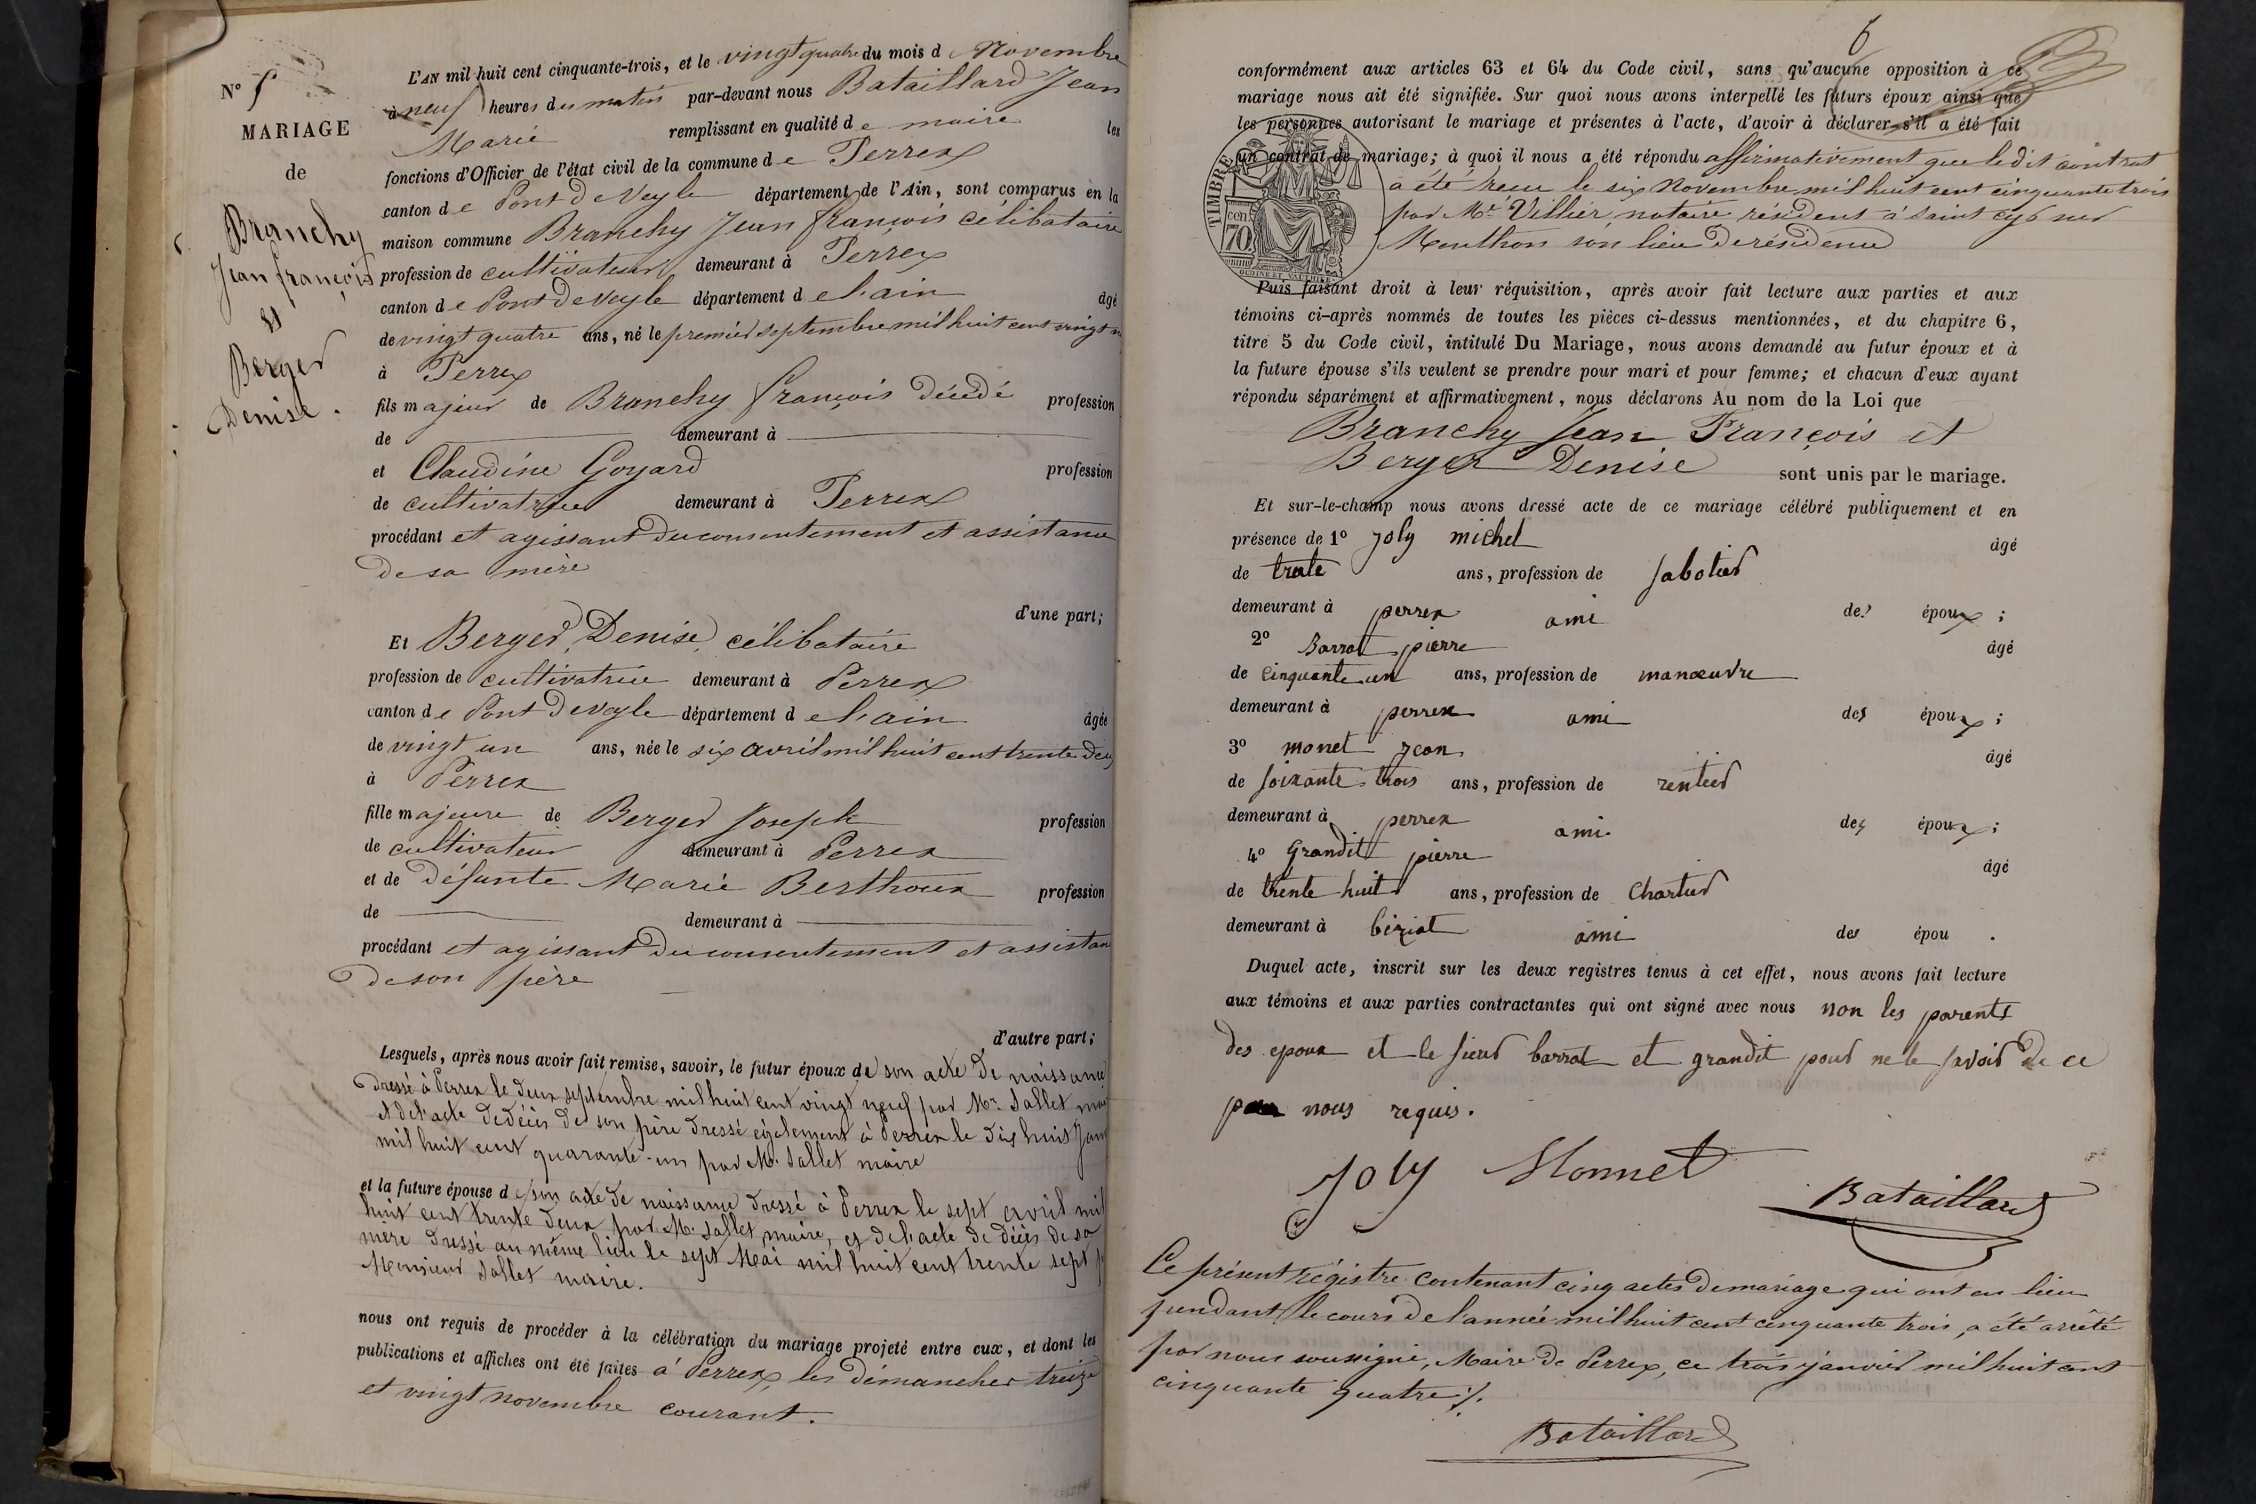 N° 5
MARIAGE
de
Branchy
Jean françois
Et
Berger
Denise.
L'AN mil huit cent cinquante-trois, et le vingt quatre du mois d Novembre
à neuf heures du matin par-devant nous Bataillard Jean
Marie remplissant en qualité de maire les
fonctions d'Officier de l'état civil de la commune de Perrex
canton de Pont de Veyle département de l'Ain, sont comparus en la
maison commune Branchy Jean françois célibataire
profession de cultivateur demeurant à Perrex
canton de Pont de Veyle département de l'ain âgé
de vingt quatre ans, né le premier septembre mil huit cent vingt
à Perrex
fils majeur de Branchy françois décédé profession
de demeurant à
et Claudine Goyard profession
de cultivatrice demeurant à Perrex
procédant et agissant du consentement et assistance
de sa mère
d'une part;
Et Berger, Denise, célibataire
profession de cultivatrice demeurant à Perrex
canton de Pont de Veyle département de l'ain âgée
de vingt un ans, née le six avril mil huit cent trente deux
à Perrex
fille majeure de Berger Joseph profession
de cultivateur demeurant à Perrex
et de défunte Marie Berthoux profession
de demeurant à
procédant et agissant du consentement et assistan
de son père
d'autre part;
Lesquels, après nous avoir fait remise, savoir, le futur époux de son acte de naissance
dressé à Perrex le deux septembre mil huit cent vingt neuf par Mr. Sallet
et de l'acte de décès de son père dressé également à Perrex le dix huit Jan
mil huit cent quarante-un par M. Sallet maire
et la future épouse de son acte de naissance dressé à Perrex le sept avril mil
huit cent trente deux par M. Sallet maire, et de l'acte de décès de sa
mère dressé au même lieu le sept Mai mil huit cent trente sept p
Monsieur Sallet maire.
nous ont requis de procéder à la célébration du mariage projeté entre eux, et dont les
publications et affiches ont été faites à Perrex, les dimanches treize
et vingt novembre courant.
6
conformément aux articles 63 et 64 du Code civil, sans qu'aucune opposition à ce
mariage nous ait été signifiée. Sur quoi nous avons interpellé les futurs époux ainsi que
les personnes autorisant le mariage et présentes à l'acte, d'avoir à déclarer s'il a été fait
un contrat de mariage; à quoi il nous a été répondu affirmativement que ledit contrat
a été recu le six Novembre mil huit cent cinquante trois
par Me. Villier, notaire résident à saint cyr sur
Menthon son lieu de résidence
TIMBRE
70 cen
OUDINE ET VAUTHIER
Puis faisant droit à leur réquisition, après avoir fait lecture aux parties et aux
témoins ci-après nommés de toutes les pièces ci-dessus mentionnées, et du chapitre 6,
titre 5 du Code civil, intitulé Du Mariage, nous avons demandé au futur époux et à
la future épouse s'ils veulent se prendre pour mari et pour femme; et chacun d'eux ayant
répondu séparément et affirmativement, nous déclarons Au nom de la Loi que
Branchy Jean François et
Berger Denise sont unis par le mariage.
Et sur-le-champ nous avons dressé acte de ce mariage célébré publiquement et en
présence de 1° Joly michel âgé
de trente ans, profession de sabotier
demeurant à perrex ami des époux;
2° Barrat pierre âgé
de cinquante un ans, profession de manœuvre
demeurant à perrex ami des époux;
3° monet jean âgé
de soixante trois ans, profession de rentier
demeurant à perrex ami des époux;
4° Grandit pierre âgé
de trente huit ans, profession de Chartier
demeurant à béziat ami des épou .
Duquel acte, inscrit sur les deux registres tenus à cet effet, nous avons fait lecture
aux témoins et aux parties contractantes qui ont signé avec nous non les parents
des epoux et le sieur barrat et grandit pour ne le savoir de ce
par nous requis.
Joly Monnet
Bataillard
Ce présent régistre contenant cinq actes de mariage qui ont eu lieu
pendant le cours de l'année mil huit cent cinquante trois, a été arrêté
par nous soussigné, Maire de Perrex, ce trois janvier mil huit cent
cinquante quatre ./.
Bataillard